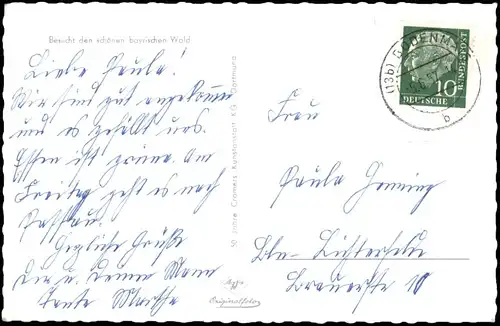 Besucht den schönen bayrischen Wald
Liebe Paula!
Wir sind gut angekommen
und es gefällt uns.
Essen ist prima. Am
Freitag geht es nach
Passau.
Herzliche Grüße
Dir u. Deinem Mann
Tante Martha
50 Jahre Cramers Kunstanstalt KG, Dortmund
Originalfotos
(13b) BODENM
DEUTSCHE
BUNDESPOST
10
b
Frau
Paula
Bln-Lichterfelde
Brauerstr 10